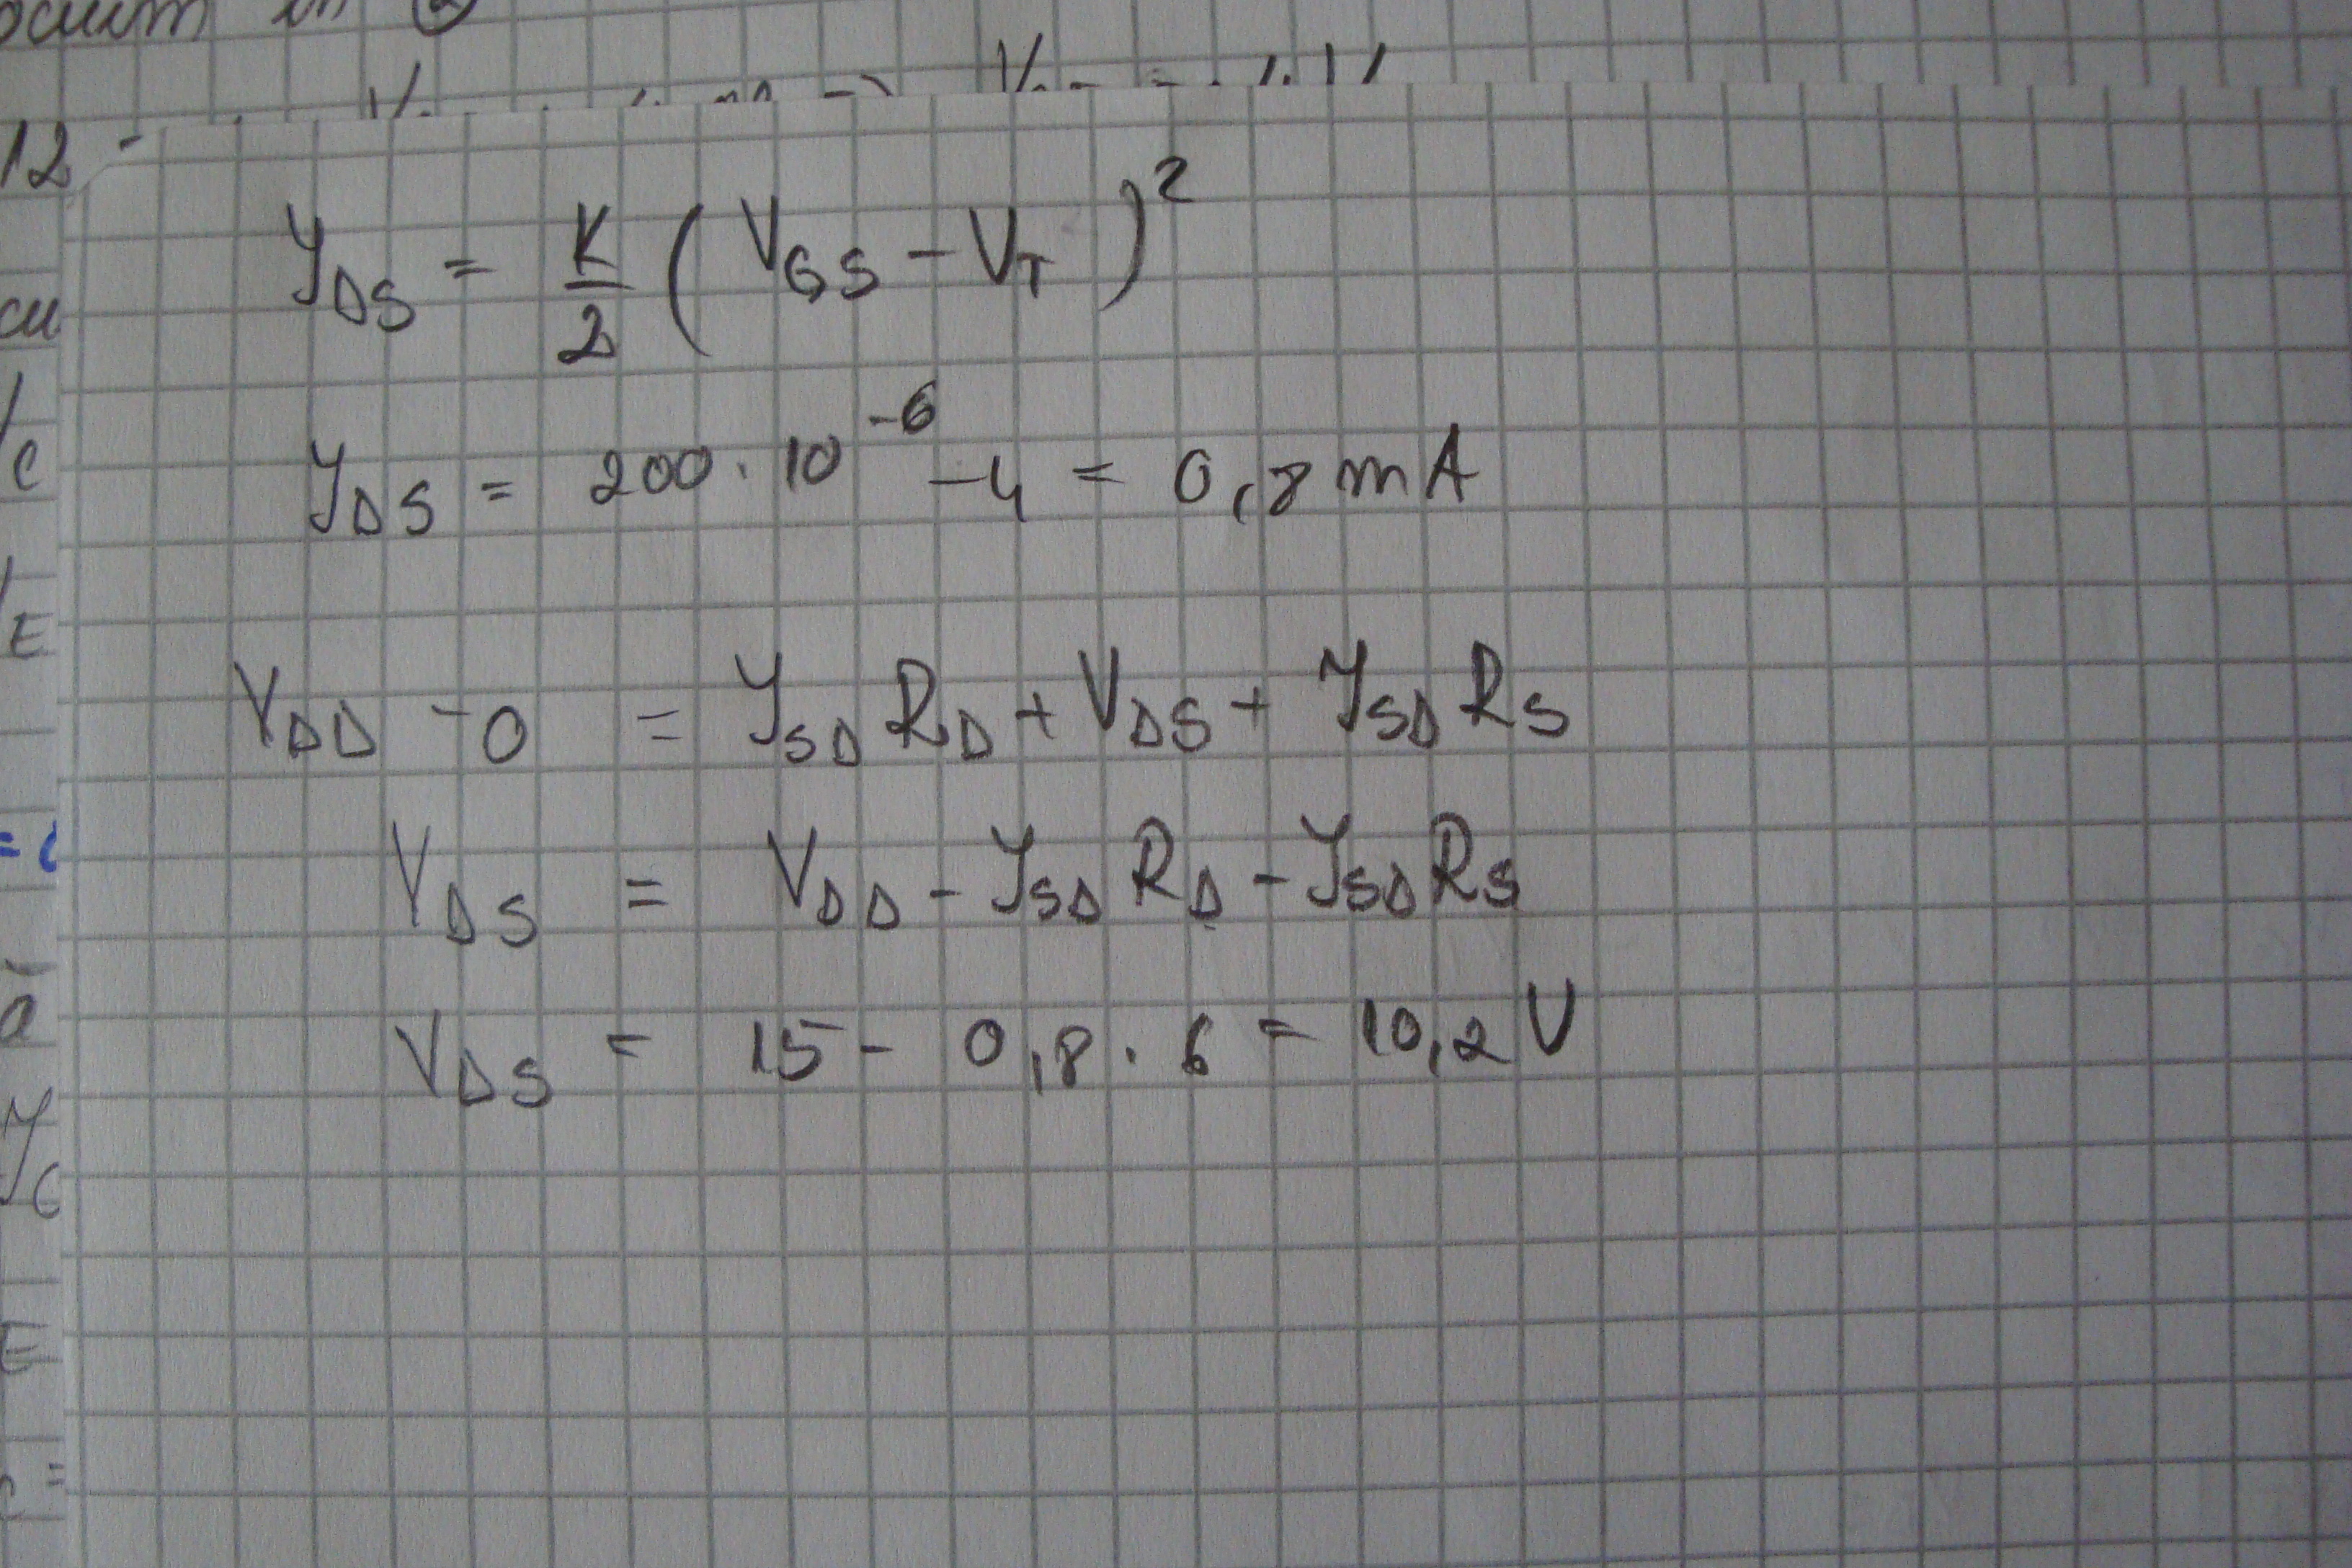 12
I_DS = K/2 (V_GS - V_T)²
I_DS = 200 · 10⁻⁶ - 4 = 0,8 mA
V_DD - 0 = I_SD R_D + V_DS + I_SD R_S
V_DS = V_DD - I_SD R_D - I_SD R_S
V_DS = 15 - 0,8 · 6 = 10,2 V